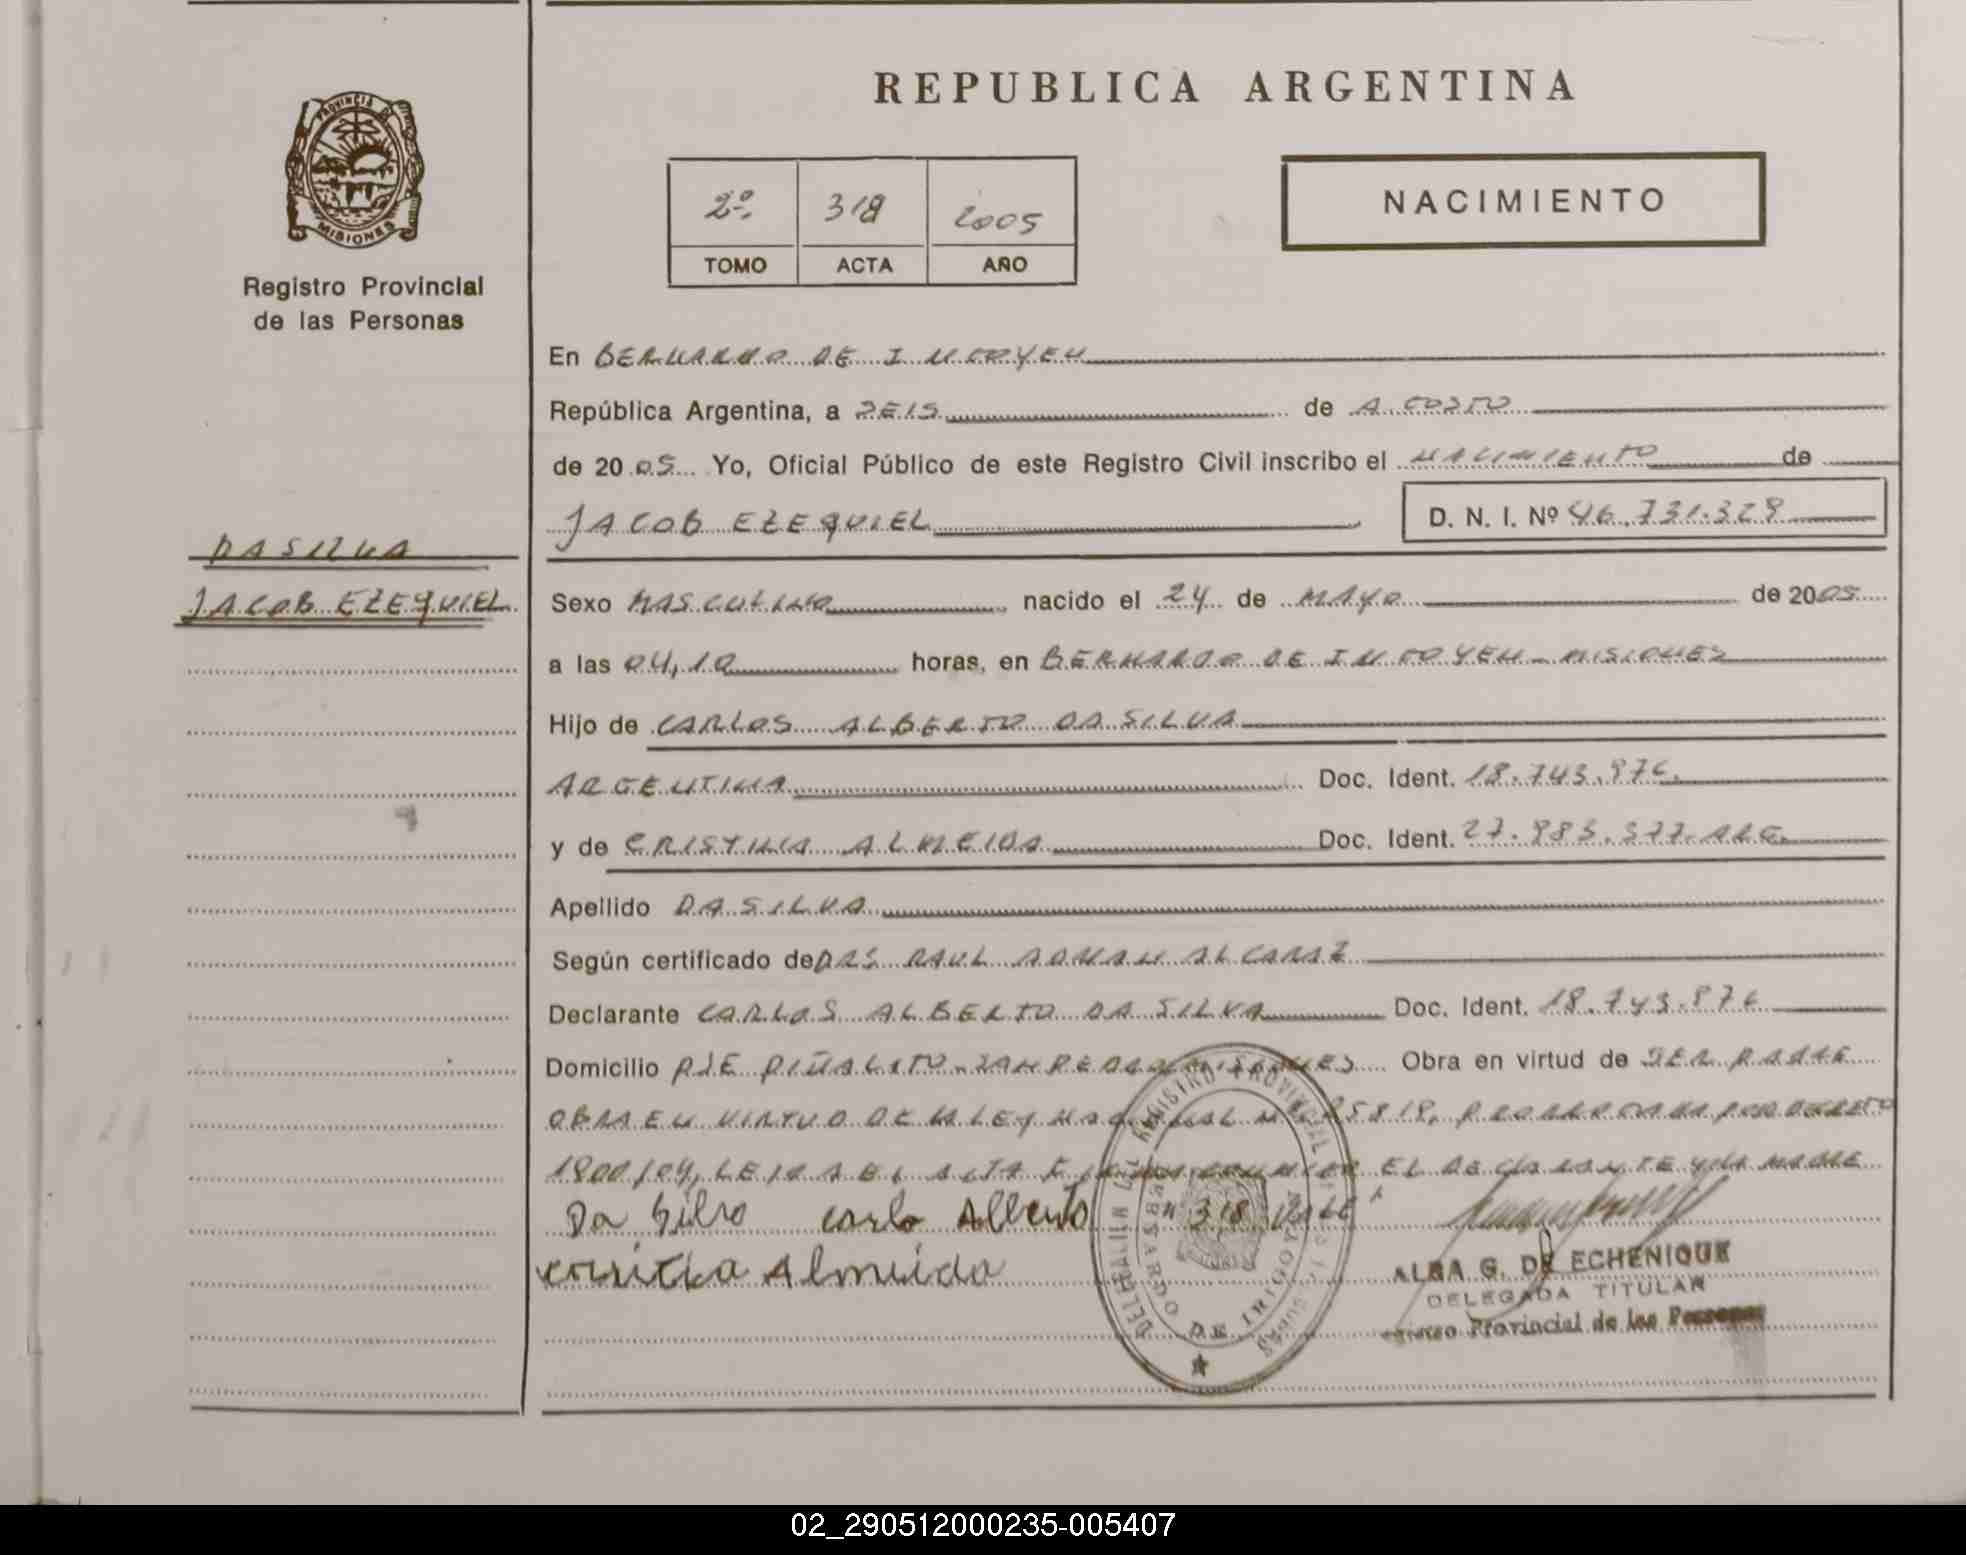 REPUBLICA ARGENTINA
PROVINCIA DE MISIONES
Registro Provincial
de las Personas
2º 318 2005
TOMO ACTA AÑO
NACIMIENTO
En BERNARDO DE IRIGOYEN
República Argentina, a SEIS de AGOSTO
de 2005 Yo, Oficial Público de este Registro Civil inscribo el NACIMIENTO de
JACOB EZEQUIEL D. N. I. Nº 46.731.329
DA SILVA
JACOB EZEQUIEL
Sexo MASCULINO nacido el 24 de MAYO de 2005
a las 04,10 horas, en BERNARDO DE IRIGOYEN - MISIONES
Hijo de CARLOS ALBERTO DA SILVA
ARGENTINA Doc. Ident. 18.743.976
y de CRISTINA ALMEIDA Doc. Ident. 27.983.577. ARG.
Apellido DA SILVA
Según certificado de DRS RAUL ALCARAZ
Declarante CARLOS ALBERTO DA SILVA Doc. Ident. 18.743.976
Domicilio PJE PIÑALITO - SAN PEDRO MISIONES Obra en virtud de SER PADRE
OBRA EN VIRTUD DE LA LEY NACIONAL Nº 25819, PRORROGADA POR DECRETO
1800/04, LEIDA EL ACTA FIRMAN EL DECLARANTE Y LA MADRE
Da Silva Carlo Alberto "318 VALE"
Almeida
ALBA G. DE ECHENIQUE
DELEGADA TITULAR
Provincial de las Personas
REGISTRO PROVINCIAL DE LAS PERSONAS
BERNARDO DE IRIGOYEN
02_290512000235-005407